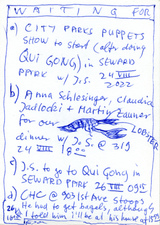 WAITING FOR
a) CITY PARKS PUPPETS
SHOW to START (after doing
QUI GONG) in SEWARD
PARK w/ J.S. 24 VIII 2022
b) Anna Schlesinger, Claudia
Jadlocki & Martin Zauner
for our LOBSTER
dinner w/ J.S @ 319
24 VIII
c) J.S. to go to QUI GONG in
SEWARD PARK 26 VIII 09
d) CHC @ 903 1st AVE STOOP.
26, He had to get bagels, although
I told him I'll be at his house at